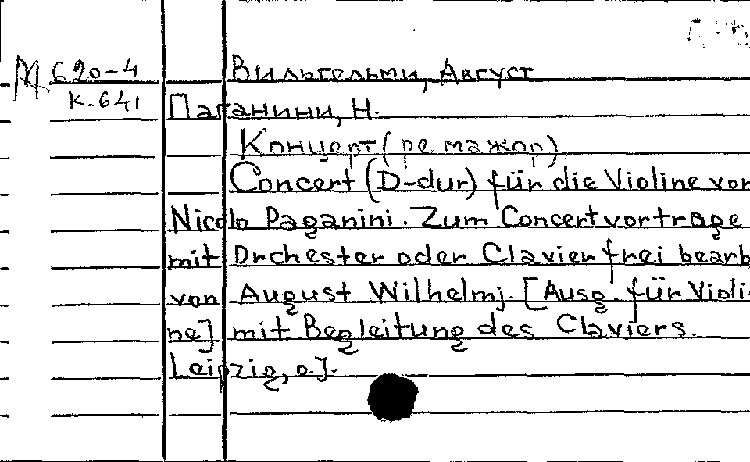 М 620-4
К-641
Вильгельми, Август
Паганини, Н.
Концерт (ре мажор)
Concert (D-dur) für die Violine von
Nicolo Paganini. Zum Concertvortrage
mit Orchester oder Clavier frei bearb
von August Wilhelmj. [Ausg. für Violi-
ne] mit Begleitung des Claviers.
Leipzig, o.J.